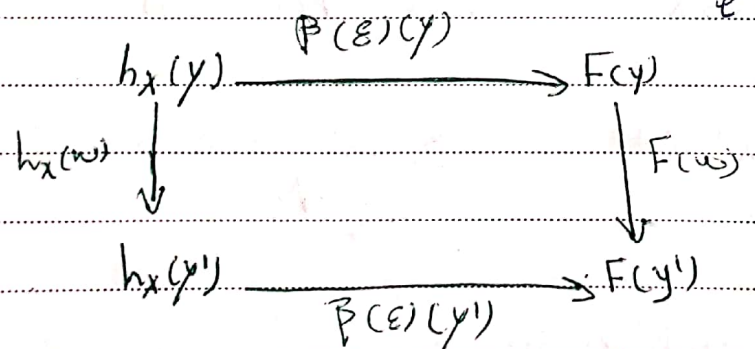 β(ξ)(y)
h_x(y) F(y)
h_x(w) F(w)
h_x(y') F(y')
β(ξ)(y')